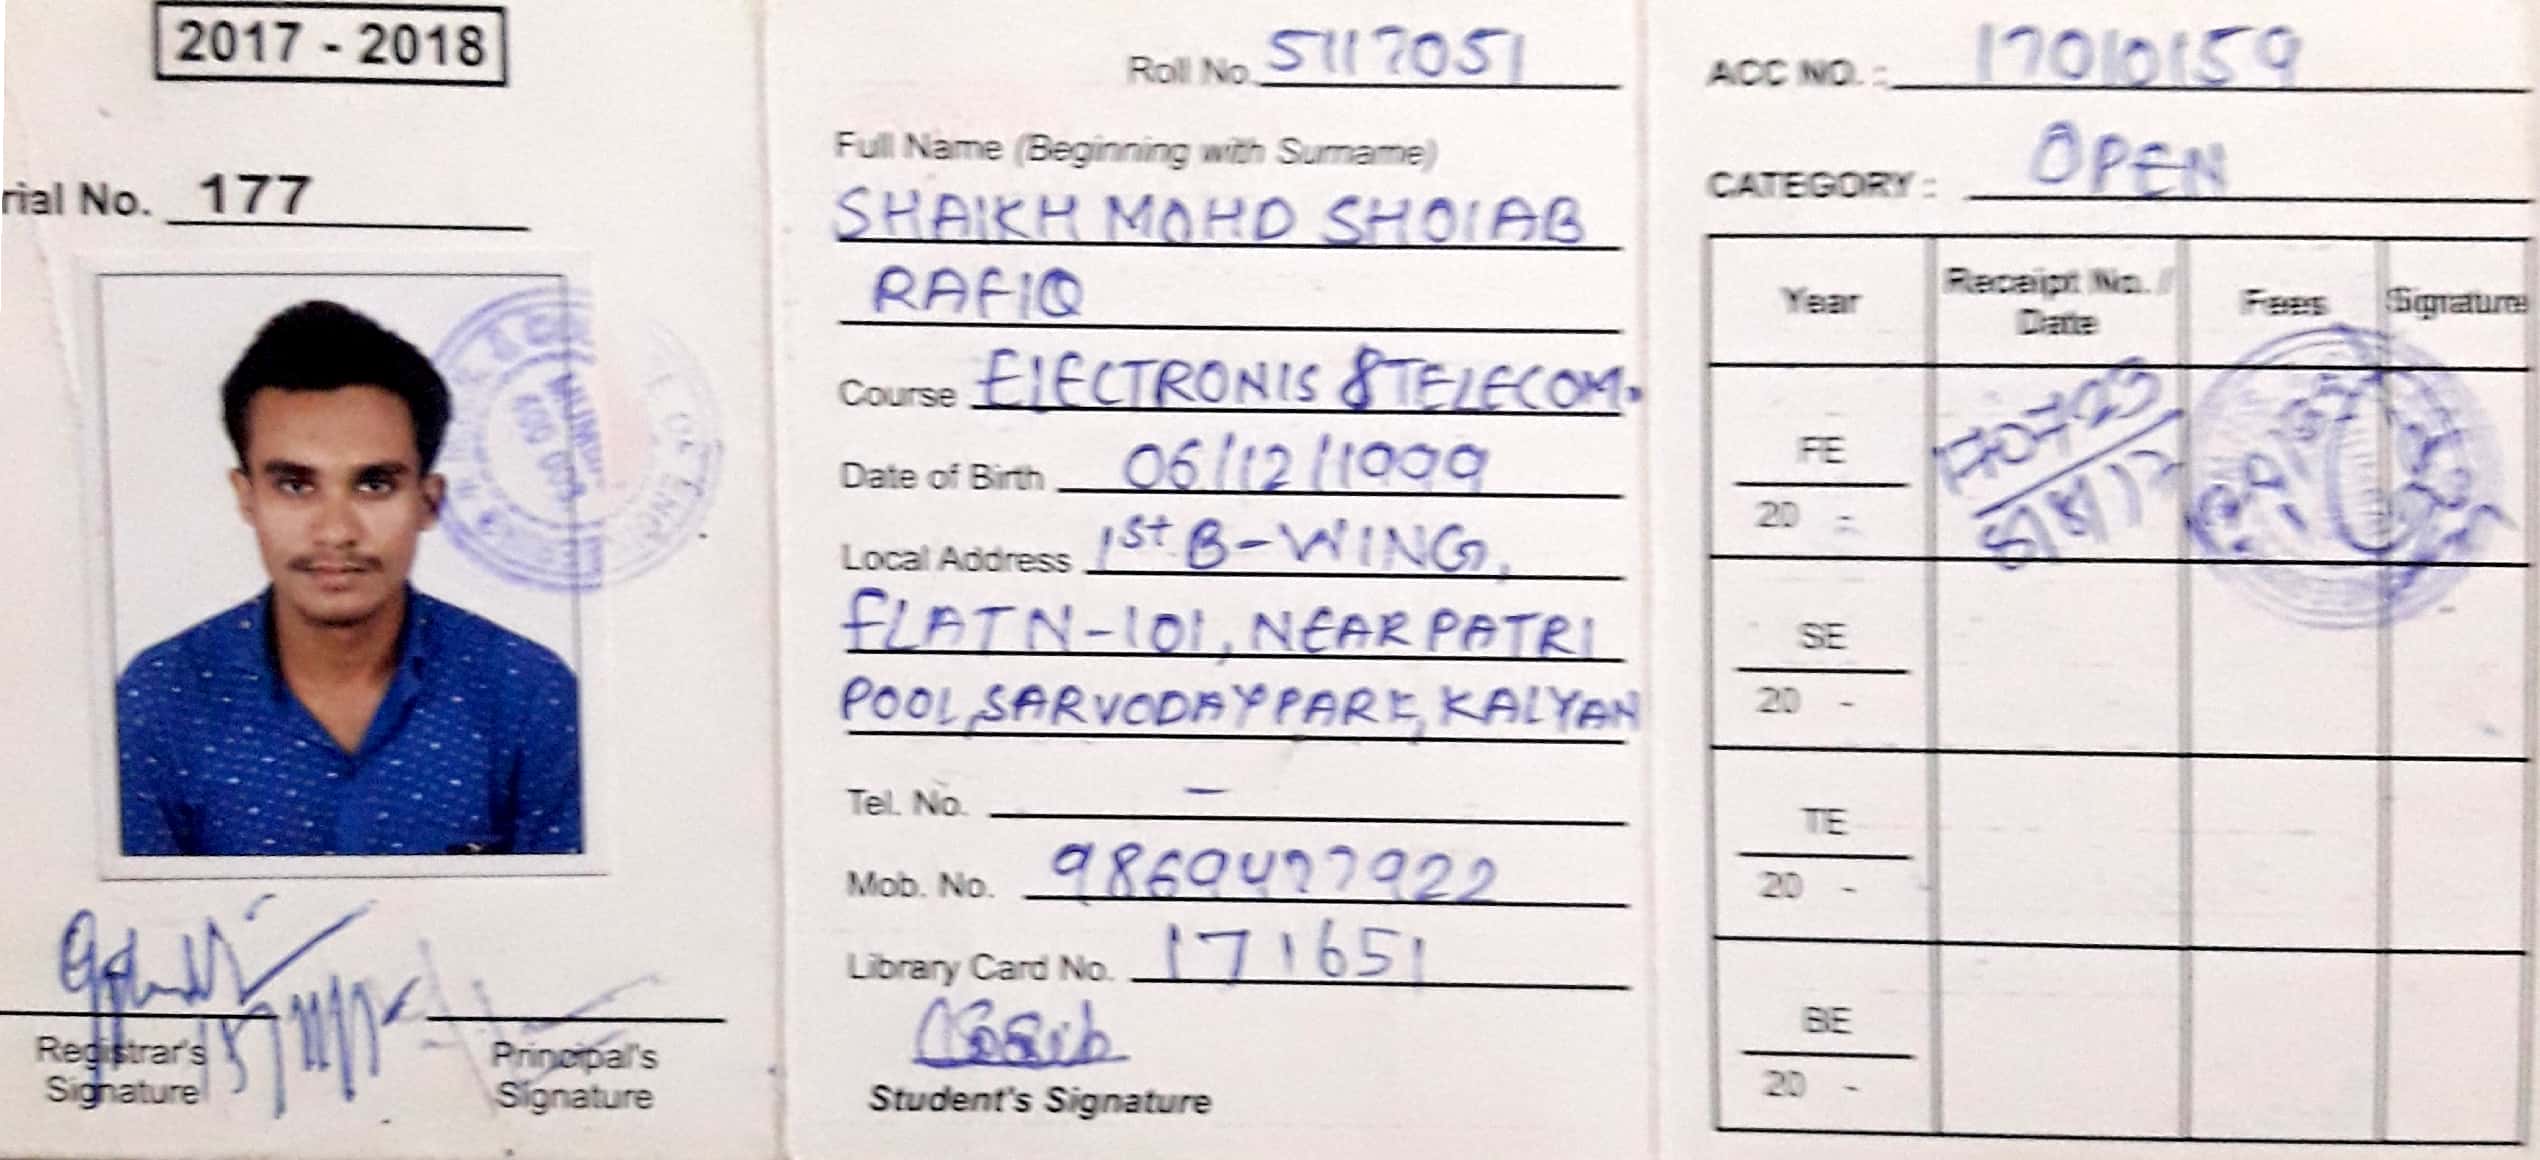 2017 - 2018
rial No. 177
Registrar's
Signature
Principal's
Signature
Roll No. 5117051
Full Name (Beginning with Surname)
SHAIKH MOHD SHOIAB
RAFIQ
Course ELECTRONIS & TELECOM.
Date of Birth 06/12/1999
Local Address 1st B-WING,
FLAT N-101, NEAR PATRI
POOL, SARVODAY PARK, KALYAN
Tel. No. -
Mob. No. 9869477922
Library Card No. 171651
Student's Signature
ACC NO. : 17010159
CATEGORY : OPEN
Year Receipt No. / Date Fees Signature
FE
20 -
SE
20 -
TE
20 -
BE
20 -